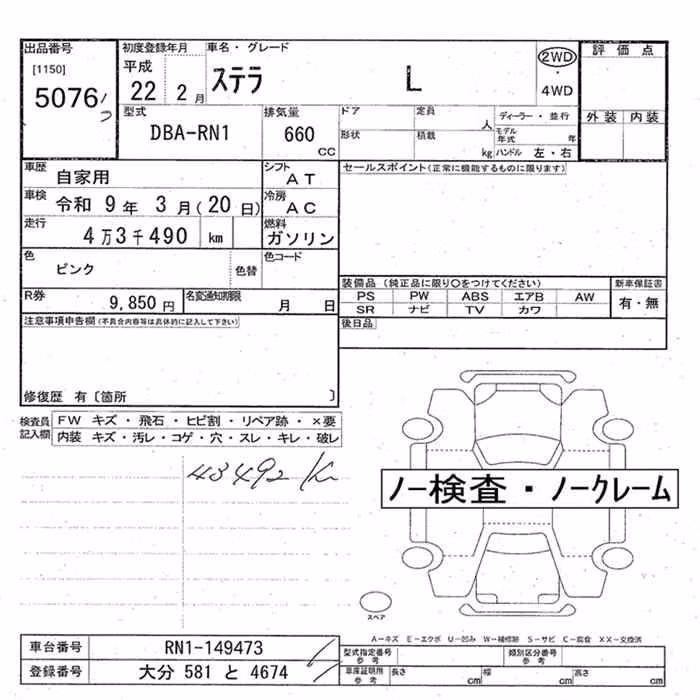 出品番号 初度登録年月 車名・グレード 2WD 評価点
[1150] 平成 ステラ L ・
5076 22 2月 4WD
型式 排気量 ドア 定員 人 ディーラー・並行 外装 内装
DBA-RN1 660 CC 形状 積載 kg モデル年式 年
ハンドル 左・右
車歴 自家用 シフト AT セールスポイント(正常に機能するものに限ります)
車検 令和 9年 3月(20日) 冷房 AC
走行 4万3千490 km 燃料 ガソリン
色 ピンク 色替 色コード
装備品 (純正品に限り○をつけてください) 新車保証書
R券 9,850円 名変通知期限 月 日 PS PW ABS エアB AW 有・無
SR ナビ TV カワ
注意事項申告欄(不具合内容等は具体的に記入して下さい) 後日品
修復歴 有〔箇所 〕
検査員記入欄 FW キズ・飛石・ヒビ割・リペア跡・×要
内装 キズ・汚レ・コゲ・穴・スレ・キレ・破レ
43492 K
ノー検査・ノークレーム
スペア
A－キズ E－エクボ U－凹み W－補修跡 S－サビ C－腐食 XX－交換済
車台番号 RN1-149473 型式指定番号 参考 類別区分番号 参考
登録番号 大分 581 と 4674 車庫証明用 参考 長さ cm 幅 cm 高さ cm